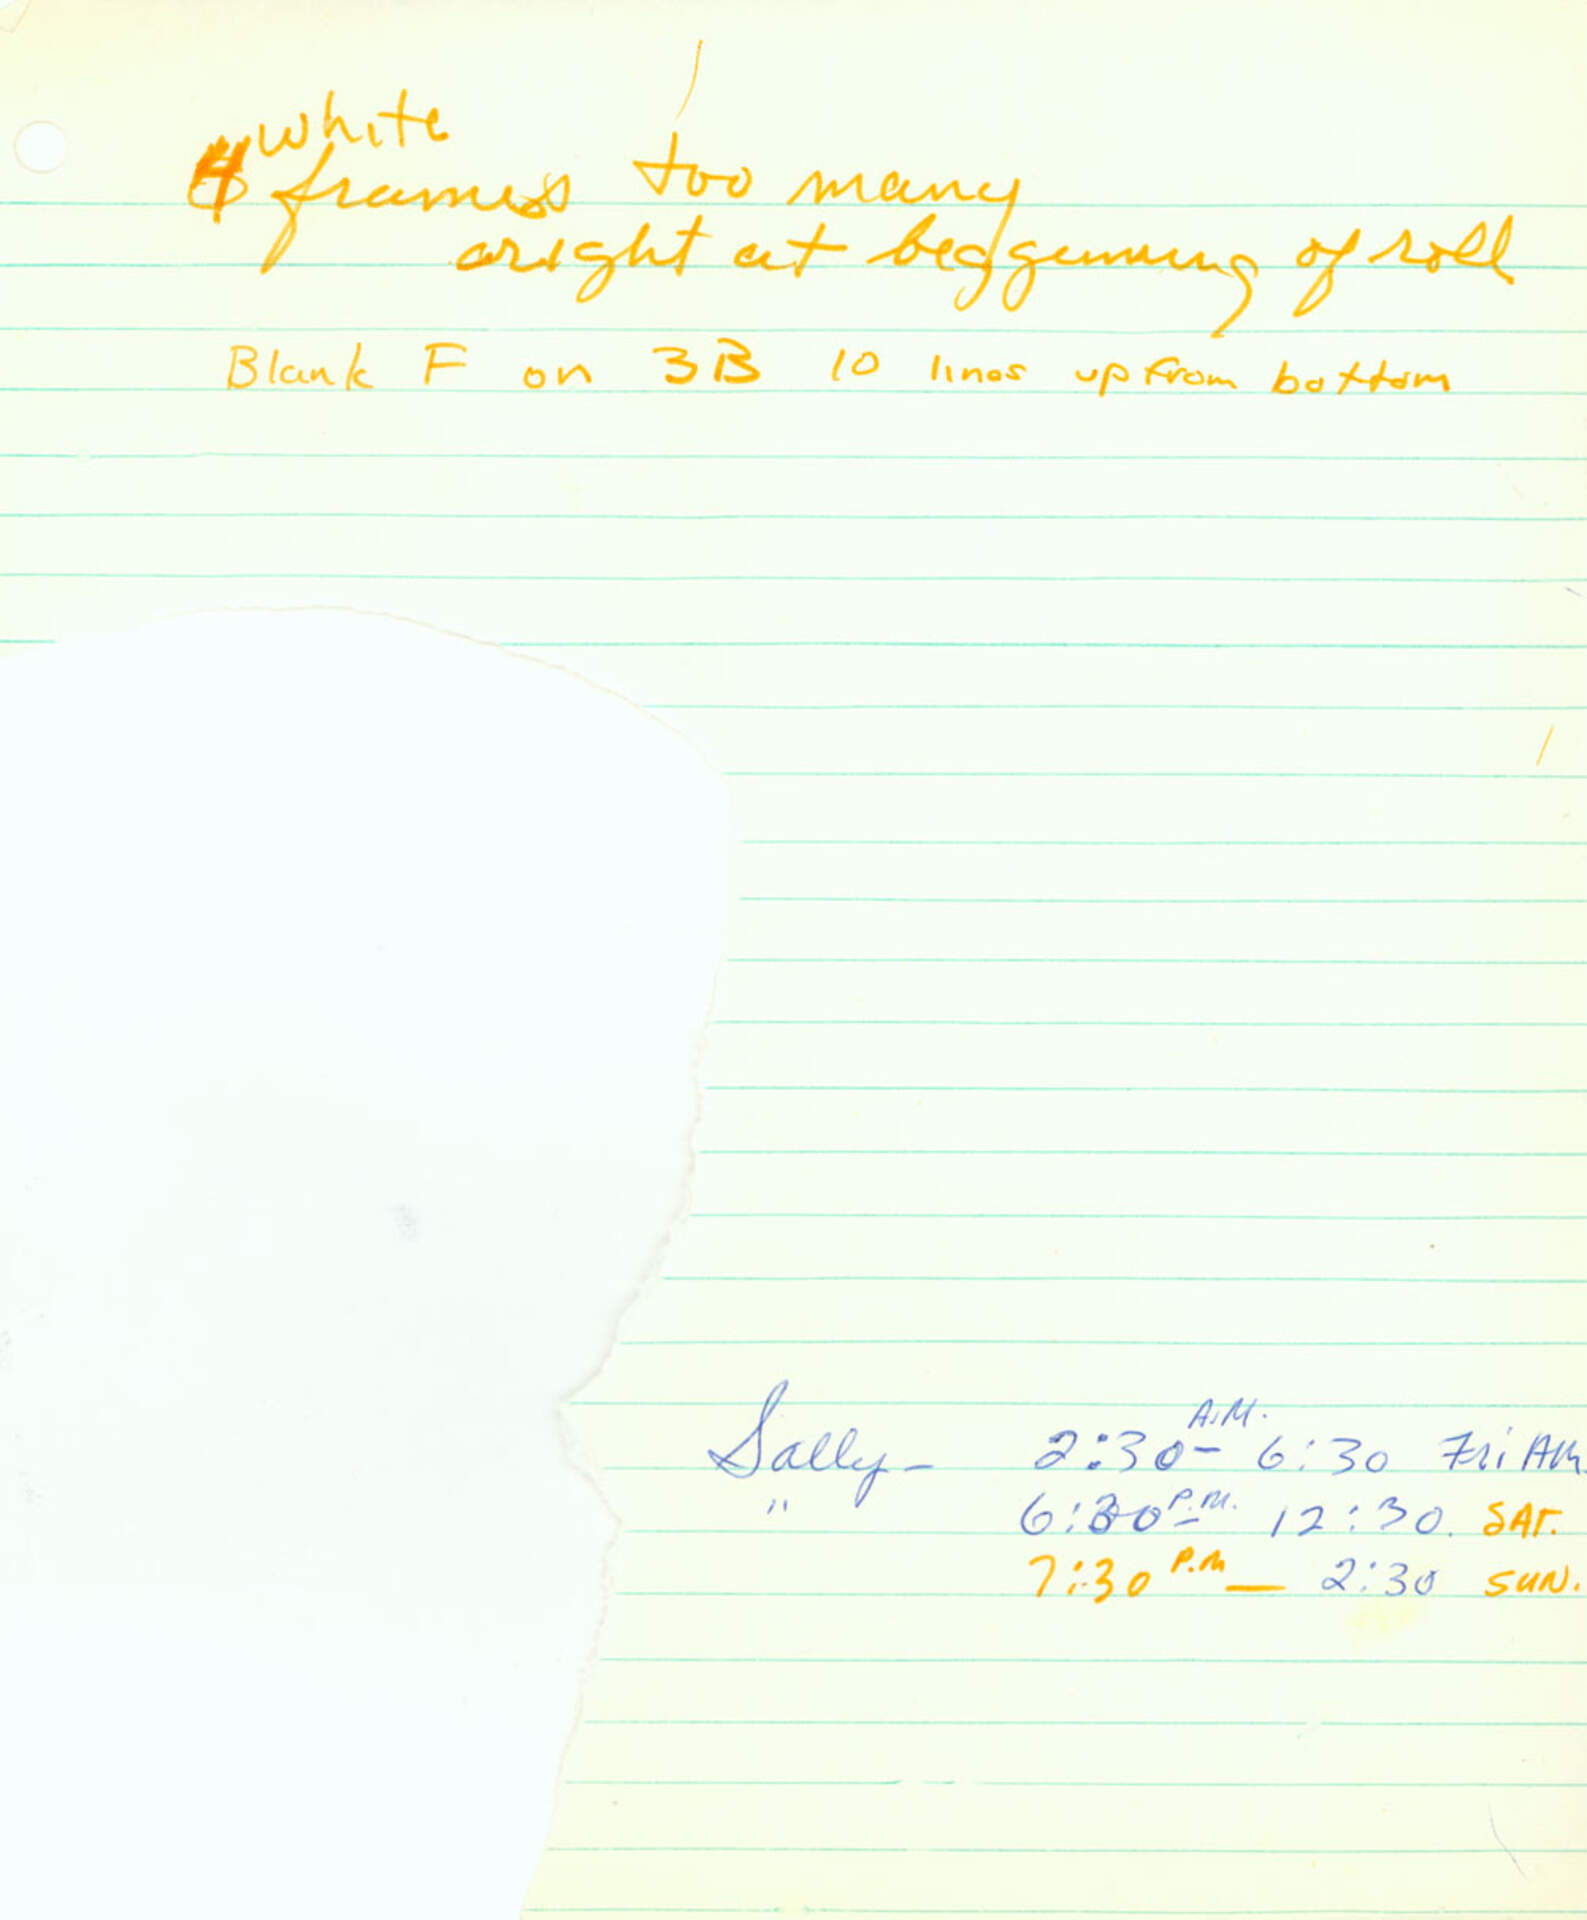 white
4 frames too many
aright at beggenning of roll
Blank F on 3B 10 lines up from bottom
Sally - 2:30 A.M. - 6:30 Fri AM.
" 6:30 P.M. - 12:30. SAT.
7:30 P.M — 2:30 SUN.